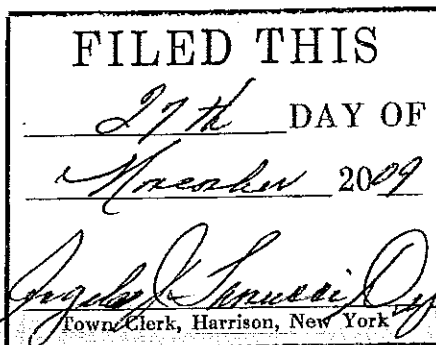 FILED THIS
27th DAY OF
November 2009
Town Clerk, Harrison, New York